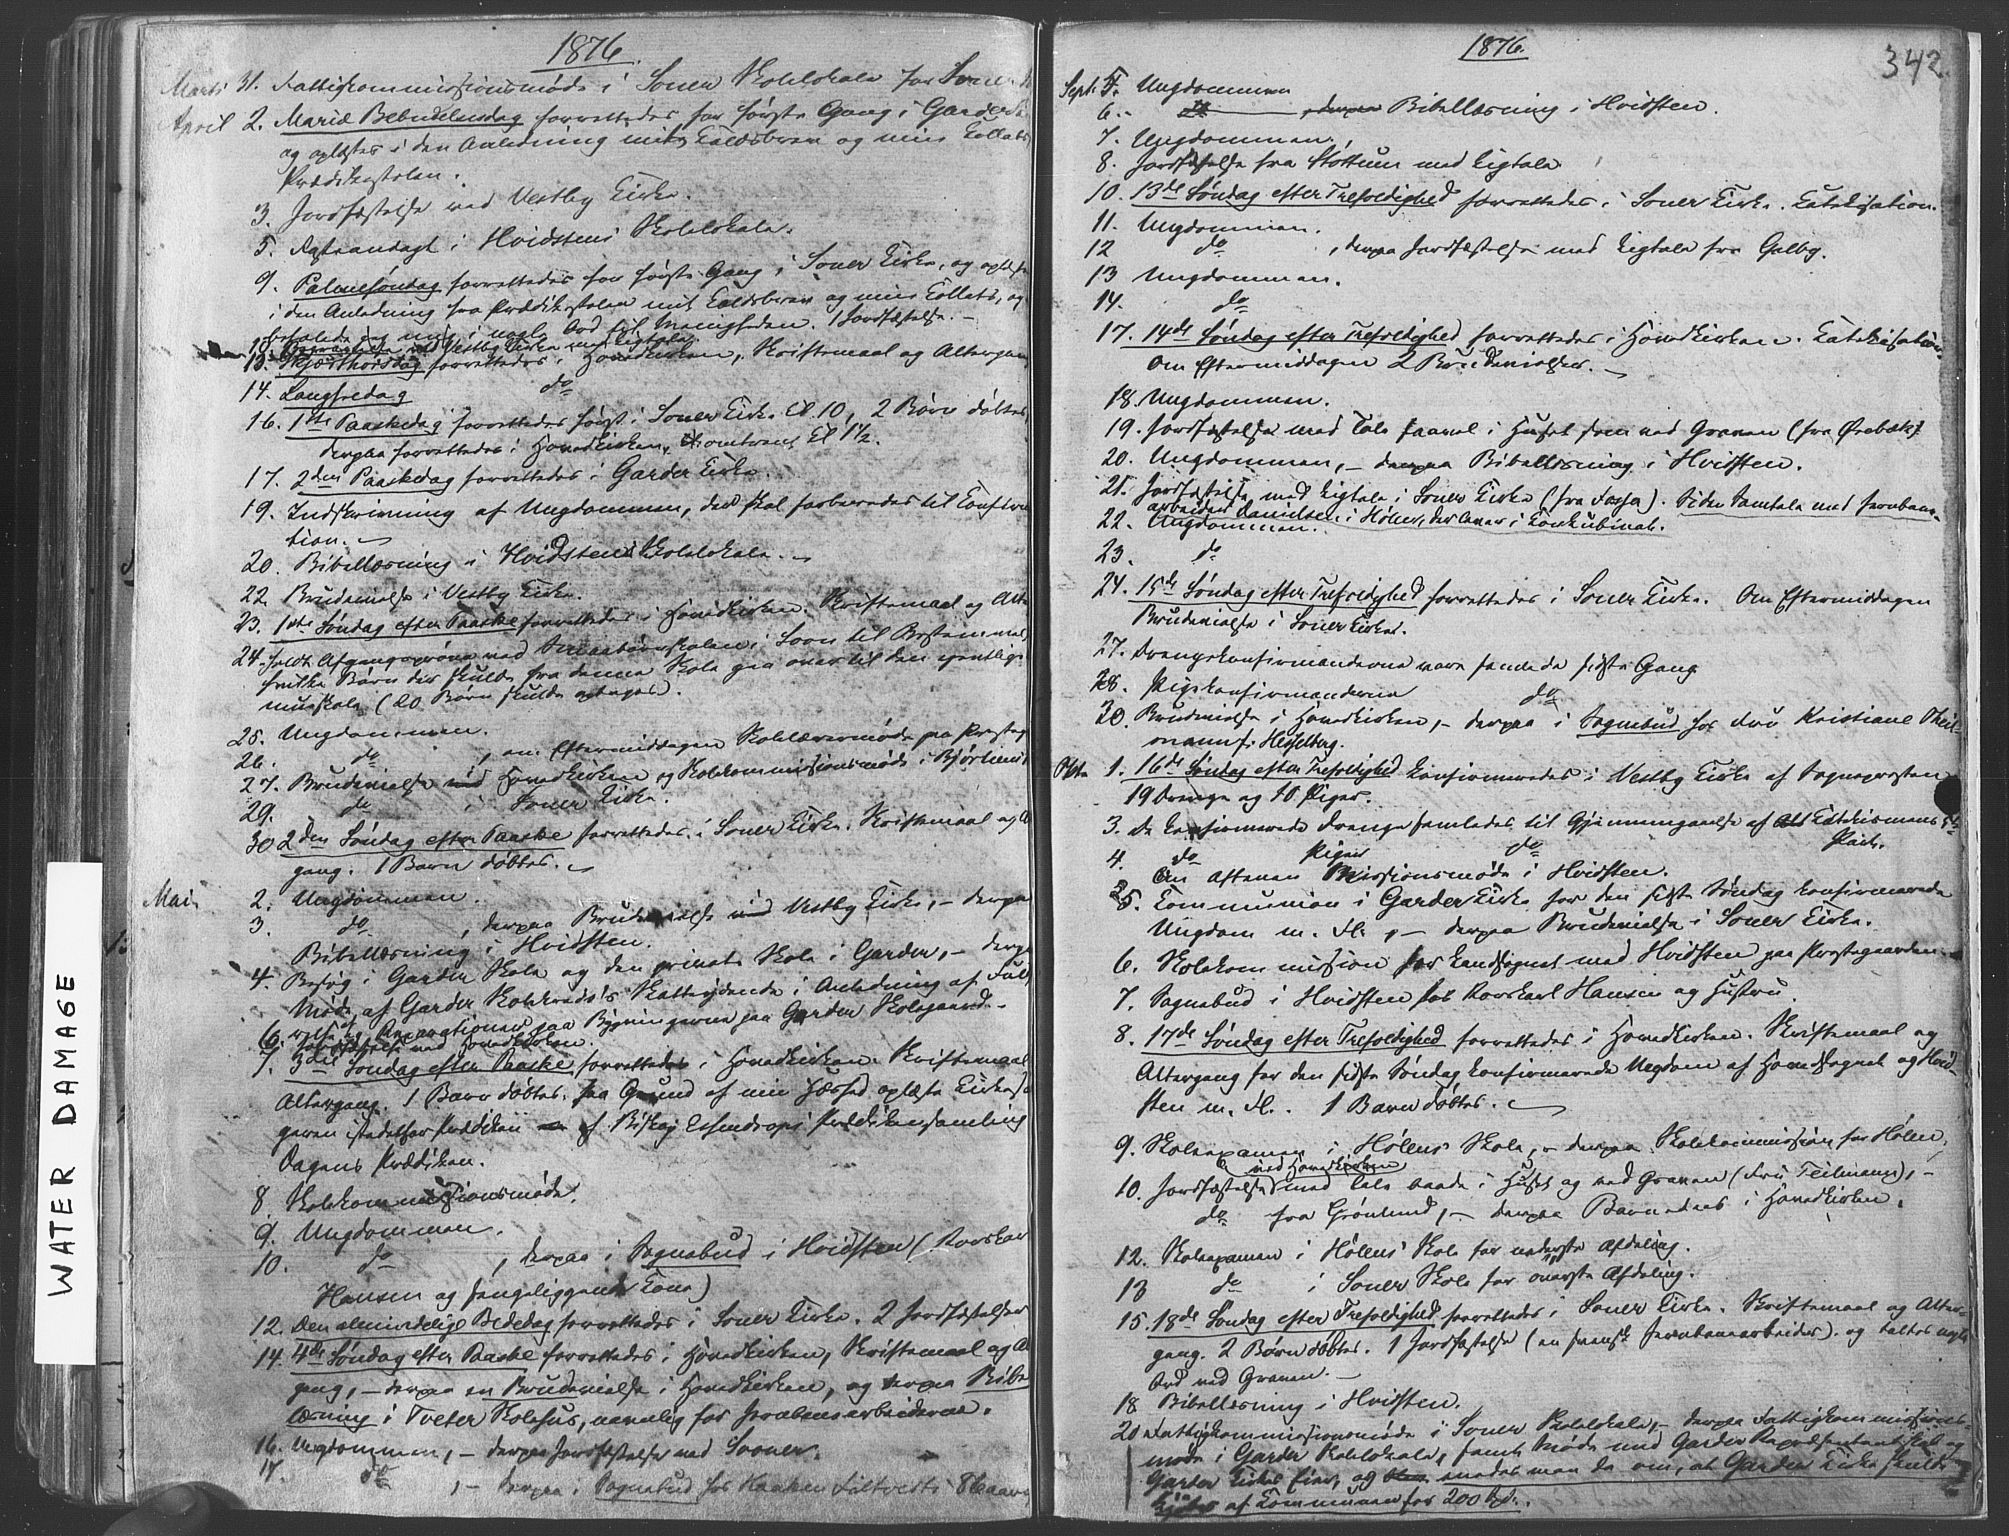 1876.
Marts 31. Fattigkommissionsmøde i Soner Skolelokale for Soner
April 2. Mariæ Bebudelsesdag forrettedes for første Gang i Garder
og oplæstes i den Anledning mit Kaldsbrev og min Kollats
Prædikestolen.
3. Jordfæstelse ved Vestby Kirke.
5. Aftenandagt i Hvidstens Skolelokale.
9. Palmesøndag forrettedes for første Gang i Soner Kirke, og oplæstes
i den Anledning fra Prædikestolen mit Kaldsbrev og min Kollats, og
mig i nogle Ord til Menigheden. 1 Jordfæstelse. -
Vestby Kirke med Ligtale
13. Skjærthorsdag forrettedes i Hovedkirken, Skriftemaal og Altergang
14. Langfredag do
16. 1ste Paaskedag forrettedes først i Soner Kirke Kl. 10, 2 Børn døbtes
derpaa forrettedes i Hovedkirken, omtrent Kl 1½.
17. 2den Paaskedag forrettedes i Garder Kirke.
19. Indskrivning af Ungdommen, der skal forberedes til Confirma
tion.
20. Bibellæsning i Hvidstens Skolelokale.
22. Brudevielse i Vestby Kirke.
23. 1ste Søndag efter Paaske forrettedes i Hovedkirken. Skriftemaal og Alter
24. holdt Afgangsprøve ved Smaabørnskolen i Soon til Bestemmelse
hvilke Børn der skulde fra denne Skole gaa over til den egentlige
muskole (20 Børn skulde optages).
25. Ungdommen.
26. do, om Eftermiddagen Skolelærermøde paa Prestegaarden
27. Brudevielse ved Hovedkirken og Skolekommissionsmøde i
29. do i Soner Kirke.
30 2den Søndag efter Paaske forrettedes i Soner Kirke. Skriftemaal og A
gang. 1 Barn døbtes.
Mai. 2. Ungdommen.
3. do, derpaa Brudevielse ved Vestby Kirke, - derpaa
Bibellæsning i Hvidsten.
4. Besøg i Garder Skole og den private Skole i Garder, - derpaa
Møde af Garder Skolekreds's Skatteydende i Anledning af
Reparationer paa Bygningerne paa Garder Skolegaard. -
6. Jordfæstelse ved Hovedkirken.
7. 3die Søndag efter Paaske forrettedes i Hovedkirken. Skriftemaal
Altergang. 1 Barn døbtes. Paa Grund af min Hæshed oplæste Kirkesan
geren istedetfor Prædiken af Biskop Essendrops Prædikensamling
Dagens Prædiken.
8. Skolekommissionsmøde.
9. Ungdommen.
10. do, derpaa i Sognebud i Hvidsten (Rorskarl
Hansen og sengeliggende Kone)
12. Den almindelige Bededag forrettedes i Soner Kirke. 2 Jordfæstelser
14. 4de Søndag efter Paaske forrettedes i Hovedkirken, Skriftemaal og A
gang, - derpaa en Brudevielse i Hovedkirken, og derpaa Bibel
læsning i Tveter Skolehus, navnlig for Jernbanearbeiderne.
16. Ungdommen, - derpaa Jordfæstelse ved Sooner.
17. do, - derpaa i Sognebud hos
WATER DAMAGE
1876.
342.
Sept. 5. Ungdommen
6. do, derpaa Bibellæsning i Hvidsten.
7. Ungdommen.
8. Jordfæstelse fra Støttum med Ligtale
10. 13de Søndag efter Trefoldighed forrettedes i Soner Kirke. Katekisation.
11. Ungdommen.
12 do, derpaa Jordfæstelse med Ligtale fra Galby.
13 Ungdommen.
14. do
17. 14de Søndag efter Trefoldighed forrettedes i Hovedkirken. Katekisation.
Om Eftermiddagen 2 Brudevielser.
18. Ungdommen.
19. Jordfæstelse med Tale saavel i Huset som ved Graven (fra Ørebæk)
20. Ungdommen, - derpaa Bibellæsning i Hvidsten.
21. Jordfæstelse med Ligtale i Soner Kirke (fra Fosse). Siden Samtale med Jernbane-
arbeider Danielsen i Hølen, der lever i Konkubinat.
22. Ungdommen.
23. do
24. 15de Søndag efter Trefoldighed forrettedes i Soner Kirke. Om Eftermiddagen
Brudevielse i Soner Kirke.
27. Drengekonfirmanderne vare samlede sidste Gang
28. Pigekonfirmanderne do
30. Brudevielse i Hovedkirken, - derpaa i Sognebud hos Fru Kristiane Theil-
mann f. Hesselberg.
Okto 1. 16de Søndag efter Trefoldighed konfirmeredes i Vestby Kirke af Sognepresten
19 Drenge og 10 Piger.
3. De konfirmerede Drenge samledes til Gjennemgaaelse af Katekismens 5te
Part.
4. do Piger do
Om Aftenen Missionsmøde i Hvidsten.
5. Communion i Garder Kirke for den sidste Søndag konfirmerede
Ungdom m. Fl., - derpaa Brudevielse i Soner Kirke.
6. Skolekommission for Landsognet med Hvidsten paa Prestegaarden.
7. Sognebud i Hvidsten hos Rorskarl Hansen og Hustru.
8. 17de Søndag efter Trefoldighed forrettedes i Hovedkirken. Skriftemaal og
Altergang for den sidste Søndag konfirmerede Ungdom af Hovedsognet og Hvid-
sten m. Fl. 1 Barn døbtes.
9. Skoleexamen i Hølens Skole, - derpaa Skolekommission for Hølen.
10. Jordfæstelse ved Hovedkirken med Tale baade i Huset og ved Graven (Fru Teilmann), -
do fra Grønlund, - derpaa Barnedaab i Hovedkirken.
12. Skoleexamen i Hølens Skole for nederste Afdeling.
13 do i Soner Skole for øverste Afdeling.
15. 18de Søndag efter Trefoldighed forrettedes i Soner Kirke. Skriftemaal og Alter-
gang. 2 Børn døbtes. 1 Jordfæstelse (en svensk Jernbanearbeider) og taltes nogle
Ord ved Graven. -
18 Bibellæsning i Hvidsten.
20 Fattigkommissionsmøde i Soner Skolelokale, - derpaa Fattigkommissions-
møde i Garder Skolelokale, samt Møde med Garder Repræsentantskab og
Garder Kirkes Eier, og enedes man da om, at Garder Kirke skulde
kjøbes af Kommunen for 200 Spd.